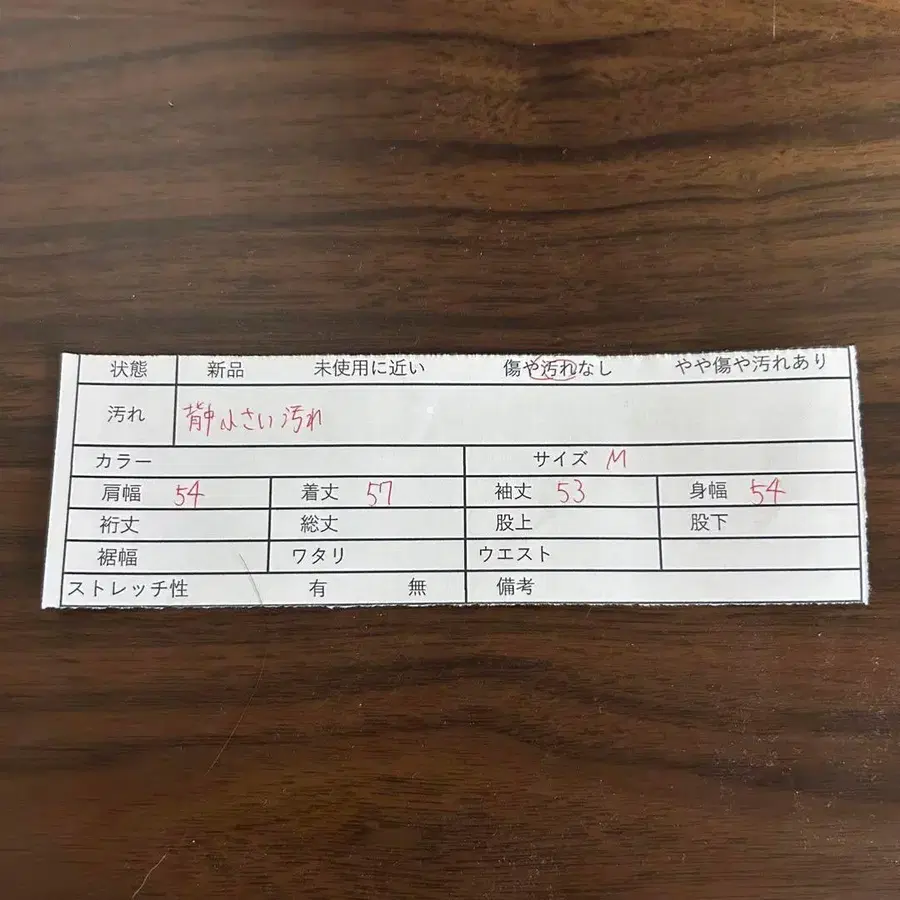 状態 新品 未使用に近い 傷や汚れなし やや傷や汚れあり
汚れ 背中 小さい汚れ
カラー サイズ M
肩幅 54 着丈 57 袖丈 53 身幅 54
裄丈 総丈 股上 股下
裾幅 ワタリ ウエスト
ストレッチ性 有 無 備考